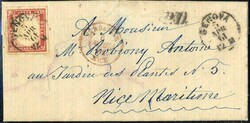 GENOVA
GENOVA
P.D.
A Monsieur
Mr Robiony Antoine
au Jardin des Plantes N° 5
Nice Maritime